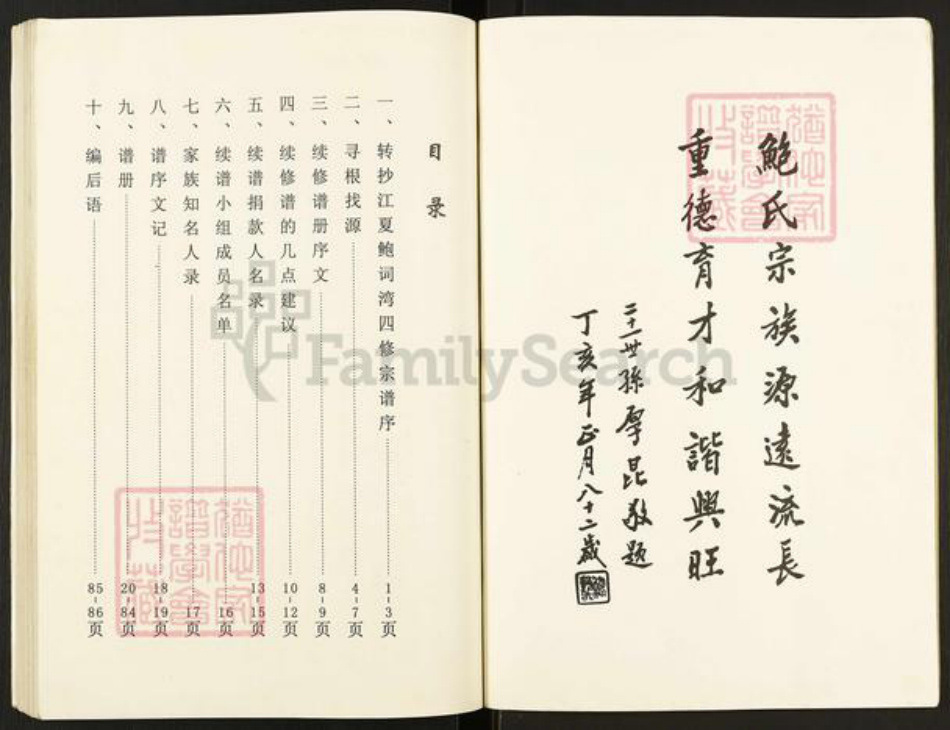 鲍氏宗族源遠流長
重德育才和諧興旺
二十一世孫厚昆敬题
丁亥年正月八十二歲
目录
一、转抄江夏鲍词湾四修宗谱序 1-3页
二、寻根找源 4-7页
三、续修谱册序文 8-9页
四、续修谱的几点建议 10-12页
五、续谱捐款人名录 13-15页
六、续谱小组成员名单 16页
七、家族知名人录 17页
八、谱序文记 18-19页
九、谱册 20-84页
十、编后语 85-86页
FamilySearch